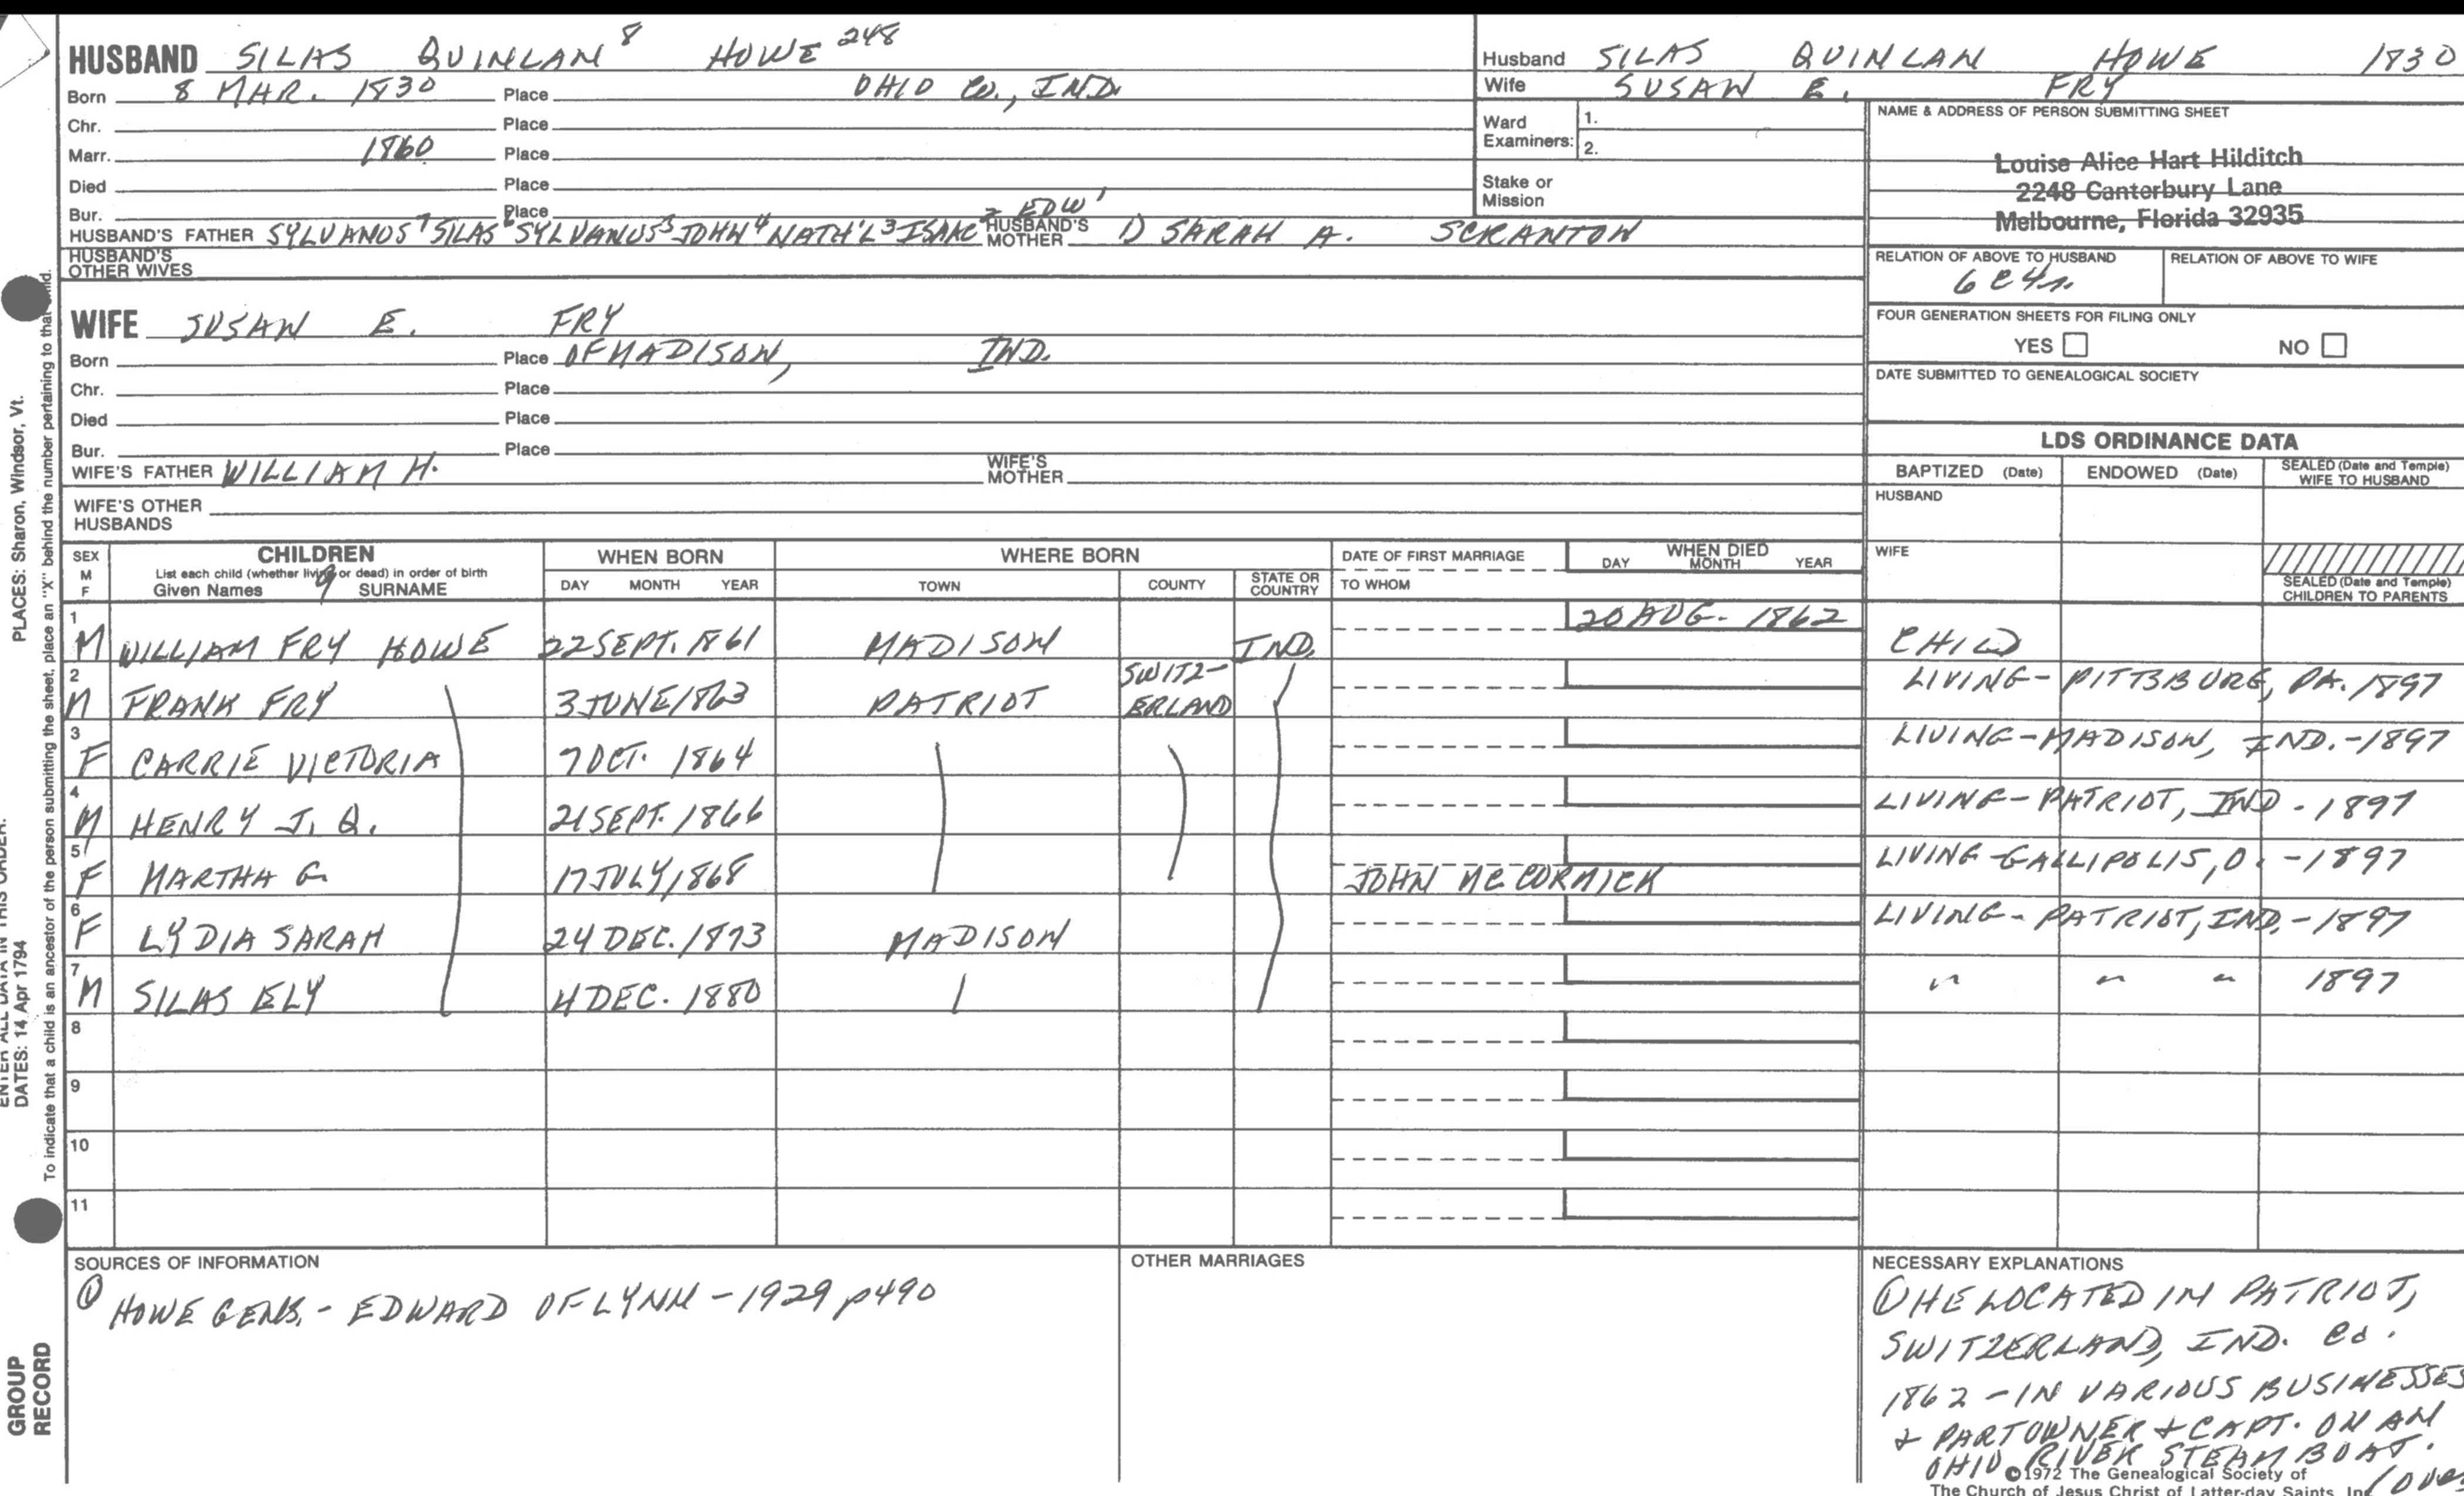 HUSBAND SILAS QUINLAN 8 HOWE 248
Born 8 MAR. 1830 Place OHIO CO., IND.
Chr. Place
Marr. 1860 Place
Died Place
Bur. Place
HUSBAND'S FATHER SYLVANUS 7 SILAS 6 SYLVANUS 5 JOHN 4 NATH'L 3 ISAAC 2 EDW 1 HUSBAND'S MOTHER 1) SARAH A. SCRANTON
HUSBAND'S OTHER WIVES
WIFE SUSAN E. FRY
Born Place OF MADISON, IND.
Chr. Place
Died Place
Bur. Place
WIFE'S FATHER WILLIAM H. WIFE'S MOTHER
WIFE'S OTHER HUSBANDS
Husband SILAS QUINLAN HOWE 1830
Wife SUSAN E. FRY
Ward Examiners: 1.
2.
Stake or Mission
NAME & ADDRESS OF PERSON SUBMITTING SHEET
Louise Alice Hart Hilditch
2248 Canterbury Lane
Melbourne, Florida 32935
RELATION OF ABOVE TO HUSBAND RELATION OF ABOVE TO WIFE
6C4r.
FOUR GENERATION SHEETS FOR FILING ONLY
YES NO
DATE SUBMITTED TO GENEALOGICAL SOCIETY
LDS ORDINANCE DATA
BAPTIZED (Date) ENDOWED (Date) SEALED (Date and Temple) WIFE TO HUSBAND
HUSBAND
WIFE
SEALED (Date and Temple) CHILDREN TO PARENTS
SEX M F CHILDREN WHEN BORN WHERE BORN DATE OF FIRST MARRIAGE WHEN DIED
List each child (whether living or dead) in order of birth
Given Names 9 SURNAME DAY MONTH YEAR TOWN COUNTY STATE OR COUNTRY TO WHOM DAY MONTH YEAR
1 M WILLIAM FRY HOWE 22 SEPT. 1861 MADISON IND. 20 AUG. 1862 CHILD
2 M FRANK FRY 3 JUNE 1863 PATRIOT SWITZ-ERLAND LIVING - PITTSBURG, PA. 1897
3 F CARRIE VICTORIA 7 OCT. 1864 LIVING - MADISON, IND. - 1897
4 M HENRY J. Q. 21 SEPT. 1866 LIVING - PATRIOT, IND - 1897
5 F MARTHA G. 17 JULY, 1868 JOHN McCORMICK LIVING - GALLIPOLIS, O. - 1897
6 F LYDIA SARAH 24 DEC. 1873 MADISON LIVING - PATRIOT, IND. - 1897
7 M SILAS ELY 4 DEC. 1880 " " " 1897
8
9
10
11
SOURCES OF INFORMATION
① HOWE GENS. - EDWARD OF LYNN - 1929 p490
OTHER MARRIAGES
NECESSARY EXPLANATIONS
① HE LOCATED IN PATRIOT,
SWITZERLAND, IND. Co.
1862 - IN VARIOUS BUSINESSES
& PARTOWNER & CAPT. ON AN
OHIO RIVER STEAM BOAT.
(over
©1972 The Genealogical Society of
The Church of Jesus Christ of Latter-day Saints, Inc
PLACES: Sharon, Windsor, Vt.
ENTER ALL DATA IN THIS ORDER:
DATES: 14 Apr 1794
To indicate that a child is an ancestor of the person submitting the sheet, place an "X" behind the number pertaining to that child.
GROUP
RECORD